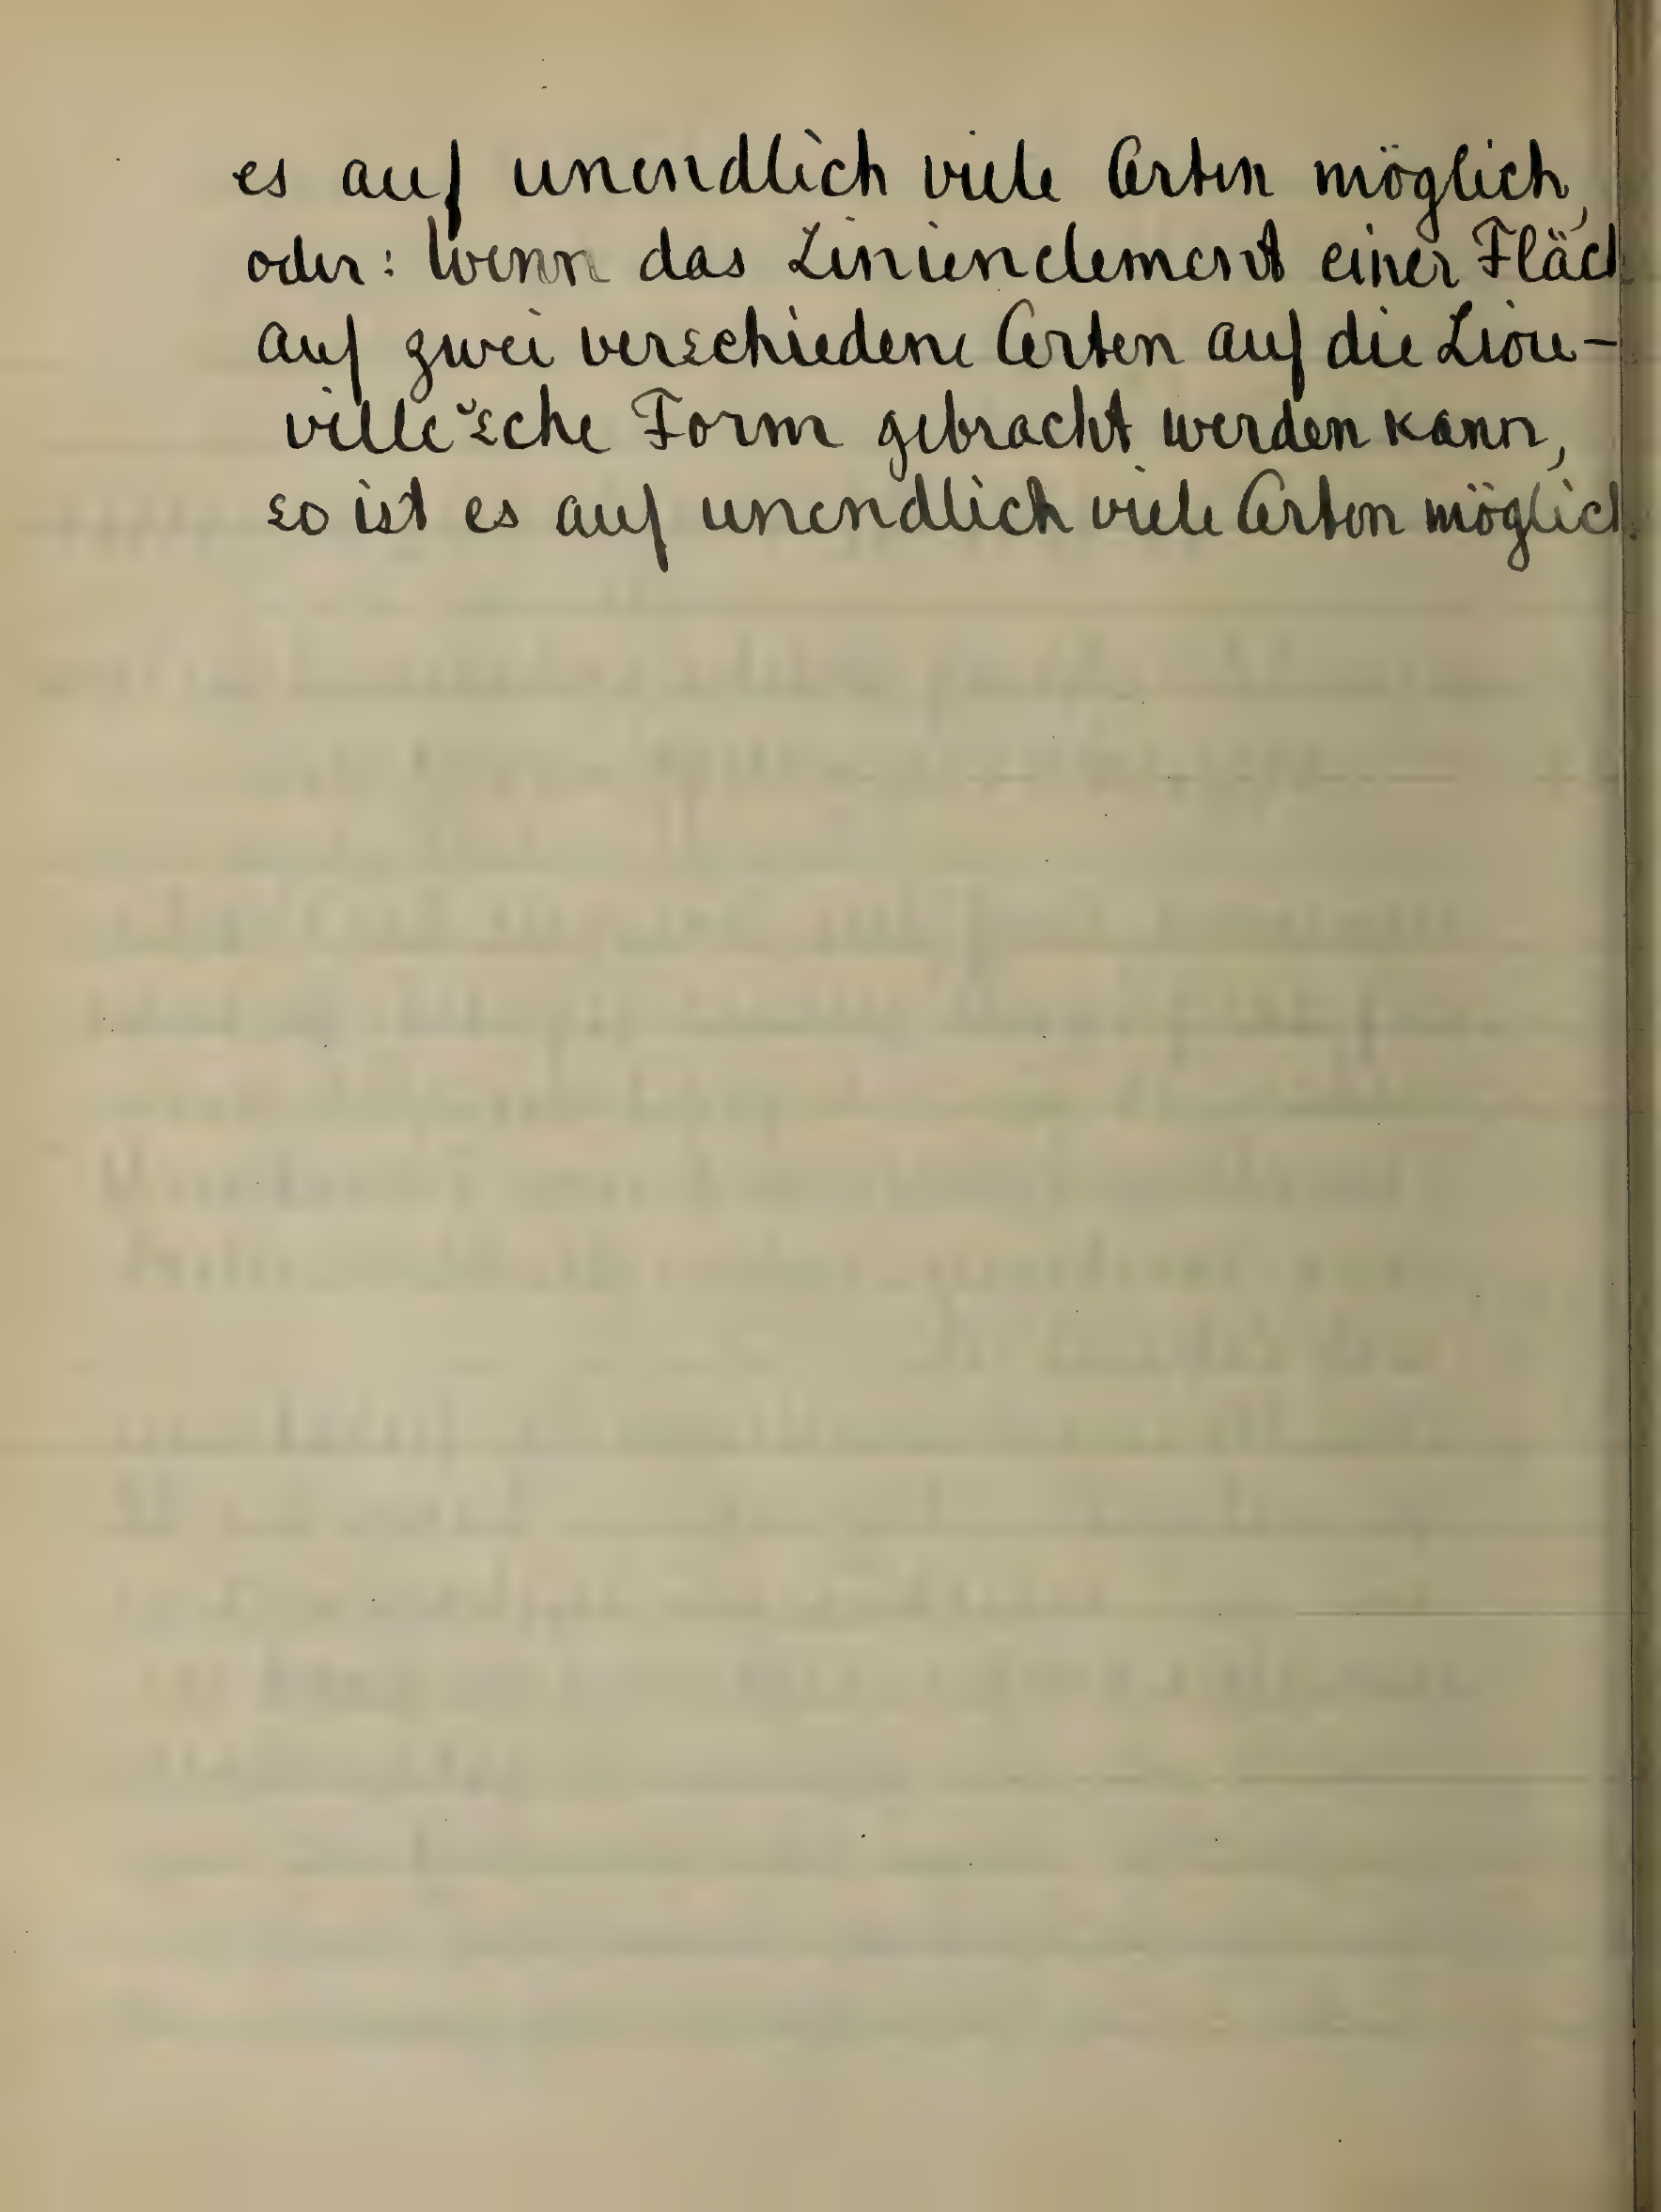 es auf unendlich viele Arten möglich,
oder: Wenn das Linienelement einer Fläch
auf zwei verschiedene Arten auf die Liou-
ville'sche Form gebracht werden kann,
so ist es auf unendlich viele Arten möglich.